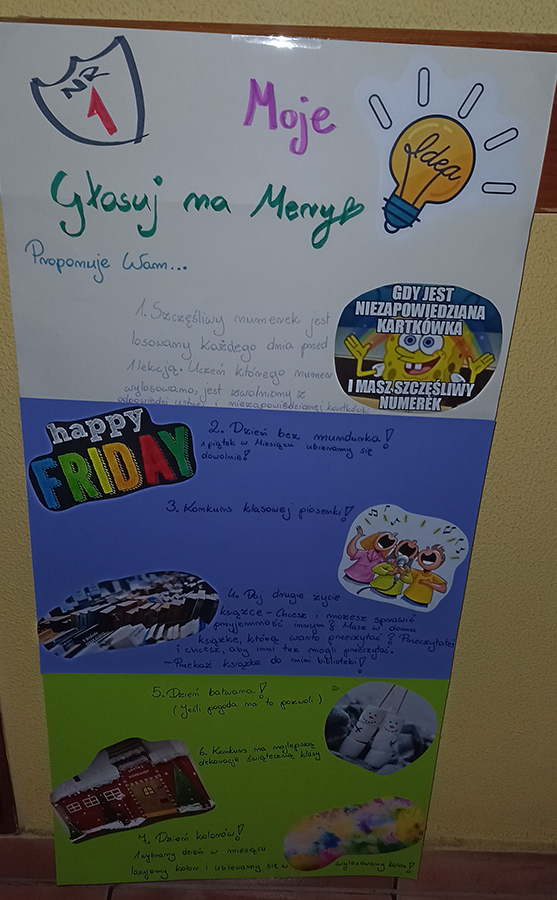 NR
1
Moje
Idea
Głosuj na Merry
Proponuje Wam...
1. Szczęśliwy numerek jest
losowany każdego dnia przed
1 lekcją. Uczeń którego numer
wylosowano, jest zwolniony z
odpowiedzi ustnej i niezapowiedzianej kartkówki
GDY JEST
NIEZAPOWIEDZIANA
KARTKÓWKA
I MASZ SZCZĘSLIWY
NUMEREK
happy
FRIDAY
2. Dzień bez mundurka!
1 piątek w Miesiącu ubieramy się
dowolnie!
3. Konkurs klasowej piosenki!
4. Daj drugie życie
książce - Chcesz i możesz sprawić
przyjemność innym? Masz w domu
książkę, którą warto przeczytać? Przeczytałeś
i chcesz, aby inni też mogli przeczytać.
- Przekaż książkę do mini biblioteki!
5. Dzień bałwana!
(Jeśli pogoda na to pozwoli)
6. Konkurs na najlepszą
dekorację świąteczną klasy
7. Dzień kolorów!
1 wybrany dzień w miesiącu
losujemy kolor i ubieramy się w wylosowany kolor!